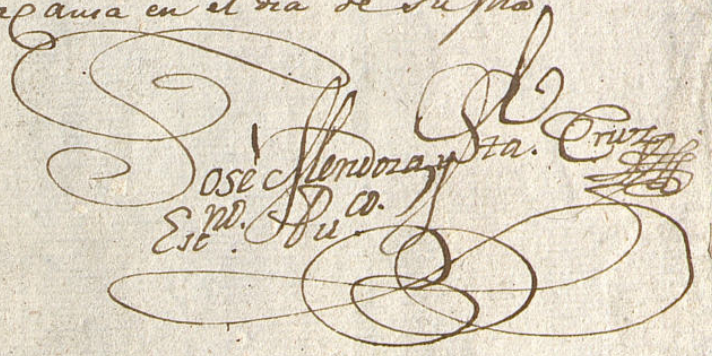 causa en el dia de su fha,
José Mendoza y Sta. Cruz
Esc.no. Pu.co.